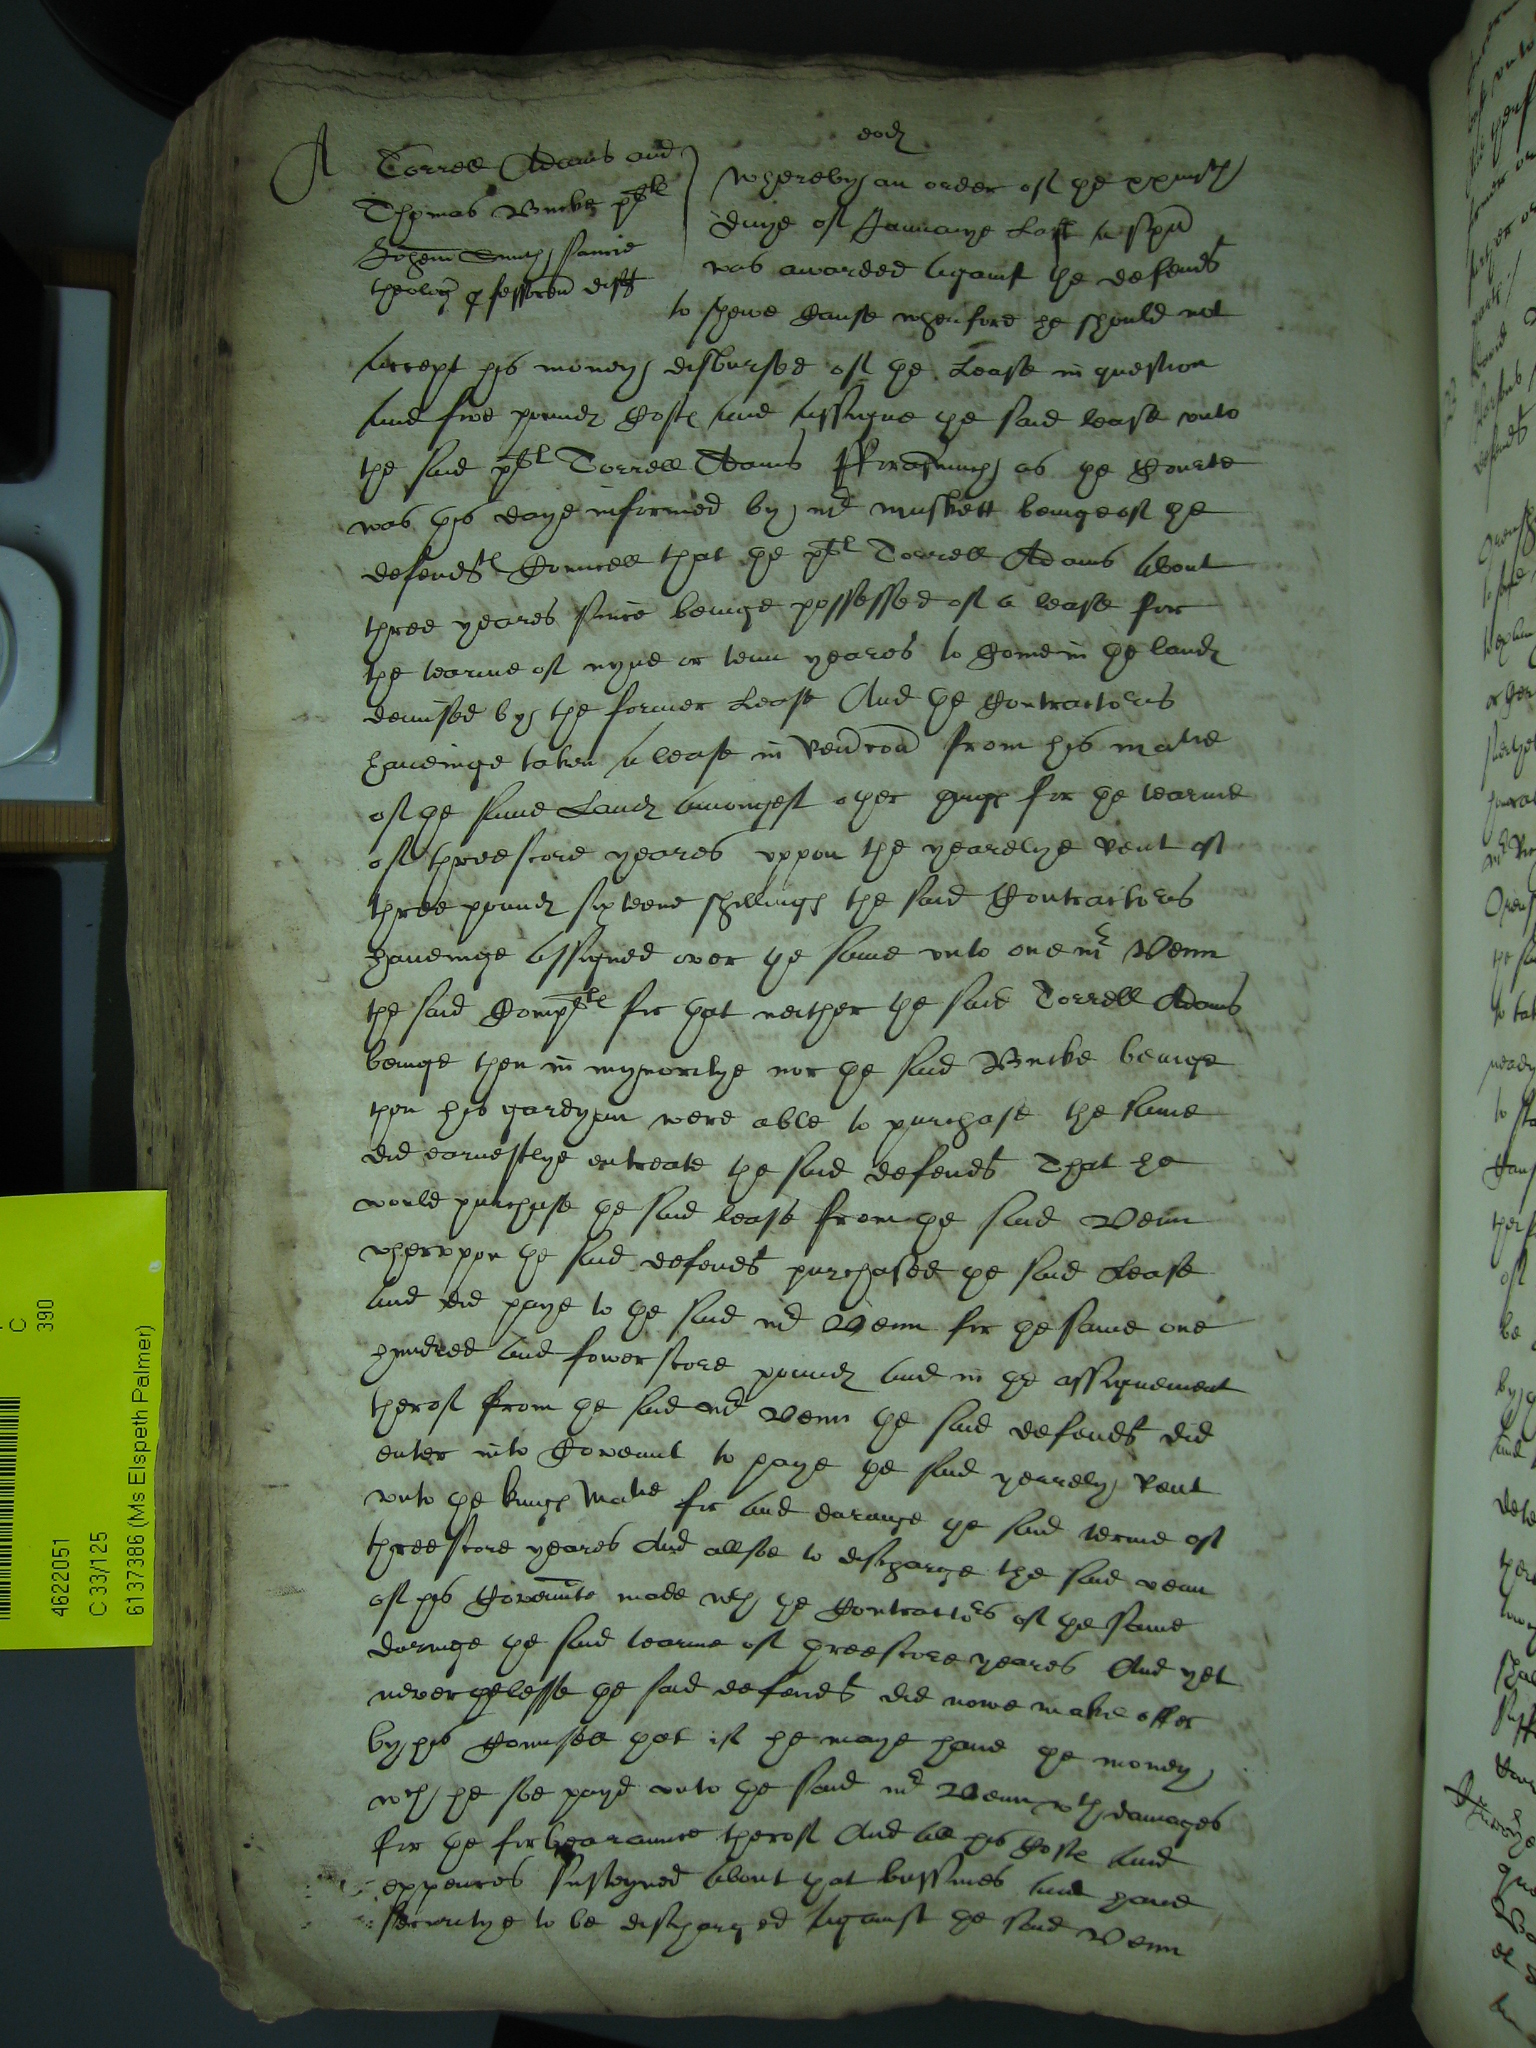 eod
A
Torrell Adams and
Thomas Bucke plts
Johem Smith sancte
theolog pfessorem deft
Whereby an order of the
daye of Januarye Last a spa
was awarded against the defendt
to shewe Cause wherefore he should not
accept his money disbursed of the Lease in question
and five pound Costs and assigne the said lease unto
the said plt Torrell Adams fforasmuch as the Courte
was this daye informed by mr muskett beinge of the
defendts Councell that the plt Torrell Adams about
three yeares since beinge possessed of a lease for
the tearme of nyne or tenn yeares to Come in the lands
demised by the former Lease And the Contractours
haveinge taken a lease in revercon from his matie
of the same Lands amongest other things for the tearme
of threescore yeares uppon the yearelye rent of
three pounds sixteene shillings the said Contractours
haveinge assigned over the same unto one mr Venn
the said Complts for that neither the said Torrell Adams
beinge then in mynoritye nor the said Bucke beinge
then his gardyan were able to purchase the same
did earnestlye entreate the said defendt That he
would purchase the said lease from the said Venn
wheruppon the said defendt purchased the said Lease
and did paye to the said mr Venn for the same one
hundred and fower score pounds and in the assignement
therof from the said mr Venn the said defendt did
enter into Covenant to paye the said yearely rent
unto the kings Matie for and duringe the said terme of
threescore yeares And allsoe to discharge the said venn
of his Covennte made wth the Contractors of the same
duringe the said tearme of threescore yeares And yet
neverthelesse the said defendt did nowe make offer
by his Counsell that if he maye have the money
wch he soe payd unto the said mr Venn wth damages
for the forbearaunce therof And all his Costs and
expences susteyned about that bussines and have
securitye to be discharged against the said Venn
C
390
4622051
C 33/125
6137386 (Ms Elspeth Palmer)